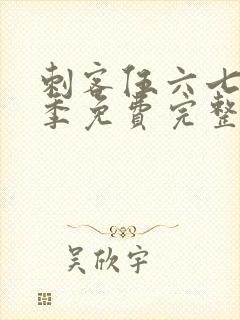 刺客伍六七
季免费完整
吴欣宇